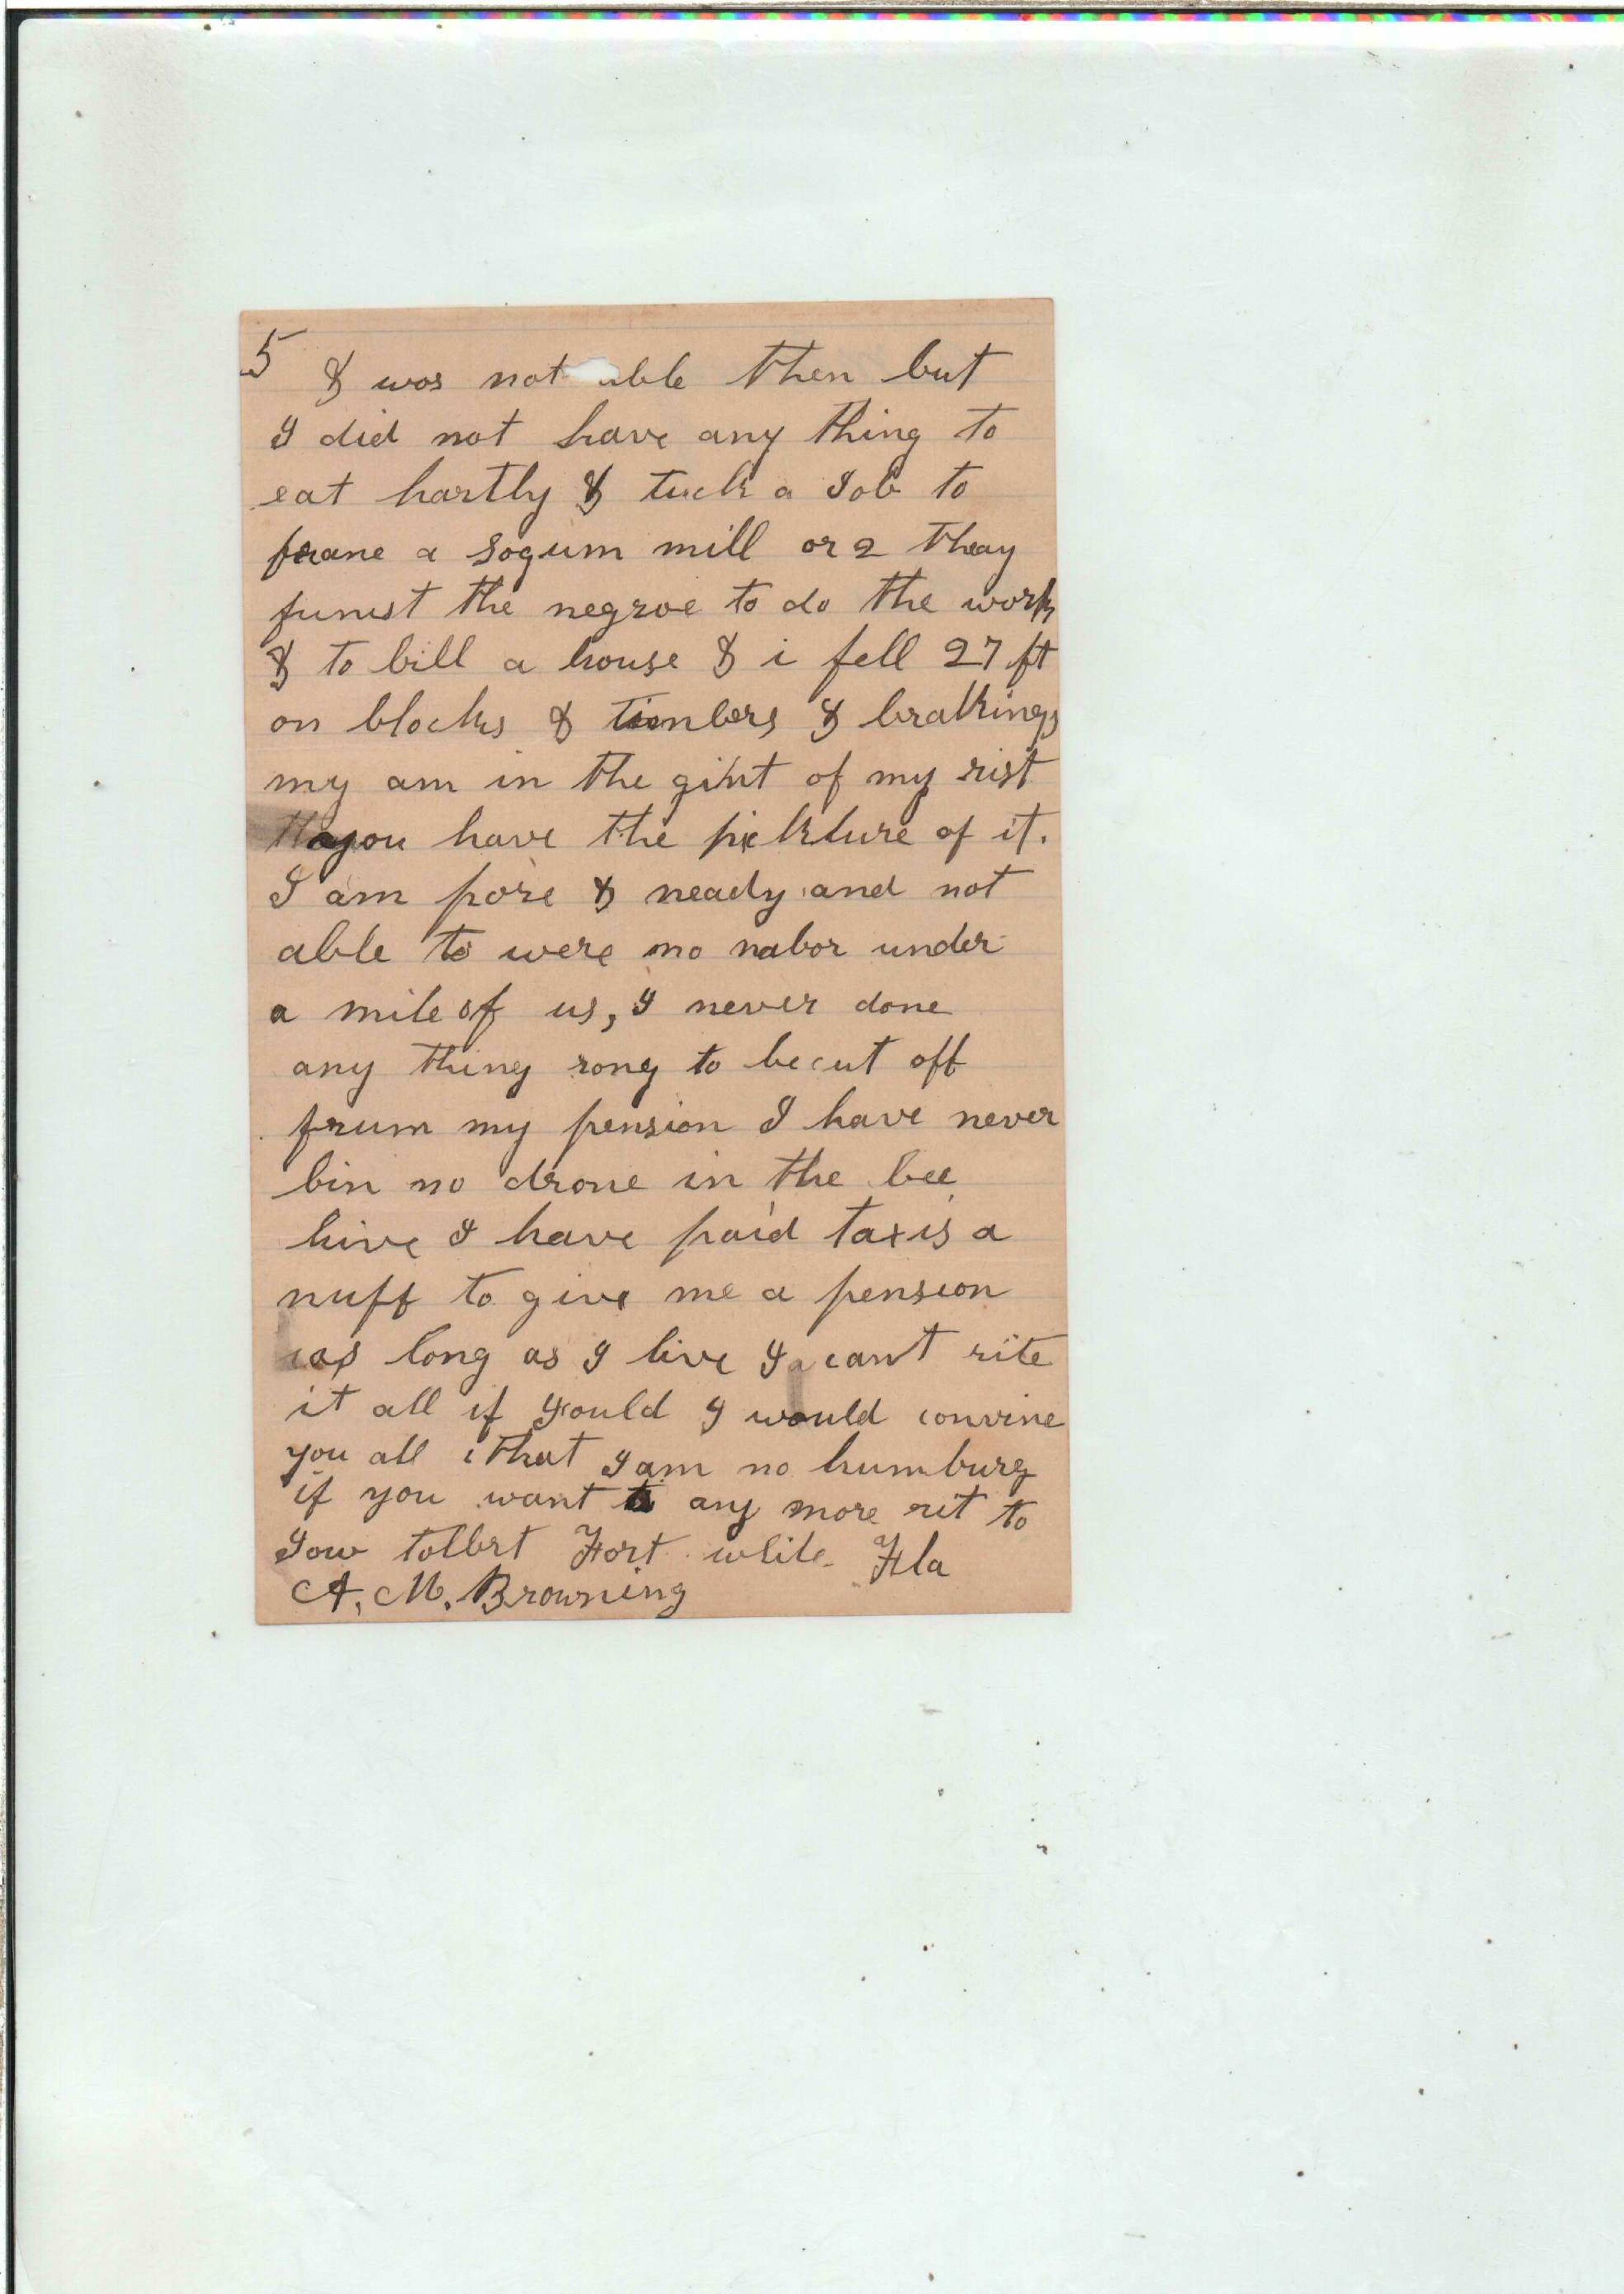 5 & was not able then but
I did not have any thing to
eat hartly & tuck a Job to
frane a sogum mill or 2 theay
funist the negroe to do the work
& to bill a house & i fell 27 ft
on blocks & timbers & brakings
my am in the gint of my rist
you have the pickture of it.
I am pore & neady and not
able to were no nabor under
a mile of us, I never done
any thing rong to be cut off
frum my pension I have never
bin no drone in the bee
hive I have paid taxis a
nuff to give me a pension
as long as I live I cant rite
it all if I could I would convine
you all that I am no humburg
if you want any more rit to
Jow tolbrt Fort white Fla
A. M. Browning